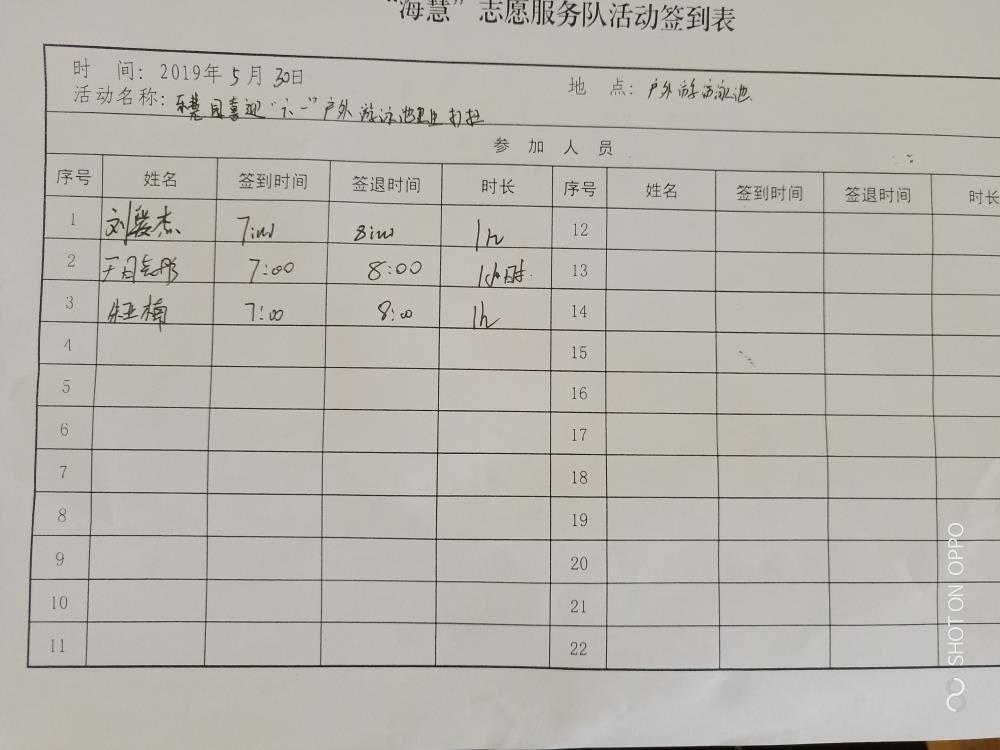 “海慧”志愿服务队活动签到表
时 间: 2019年 5 月 30日 地 点: 户外游泳池
活动名称: 喜迎“六一”户外游泳池 打扫
参 加 人 员
序号 姓名 签到时间 签退时间 时长 序号 姓名 签到时间 签退时间 时长
1 刘 杰 7:00 8:00 1h 12
2 7:00 8:00 1小时 13
3 朱亚楠 7:00 8:00 1h 14
4 15
5 16
6 17
7 18
8 19
9 20
10 21
11 22
SHOT ON OPPO